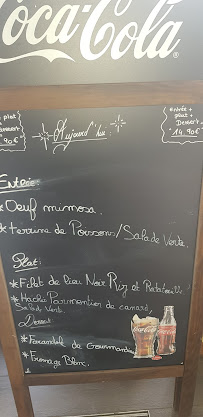 Coca-Cola
Aujourd'hui
Entrée +
plat +
Dessert
14,90€
Entrée:
* Oeuf mimosa.
* terrine de Poissons/Salade Verte.
Plat:
* Filet de lieu Noir Riz et Ratatouille
* Hachis Parmentier de canard,
Salade Verte.
Dessert
* Farandol de Gourmandises
* Fromage Blanc.
Coca-Cola